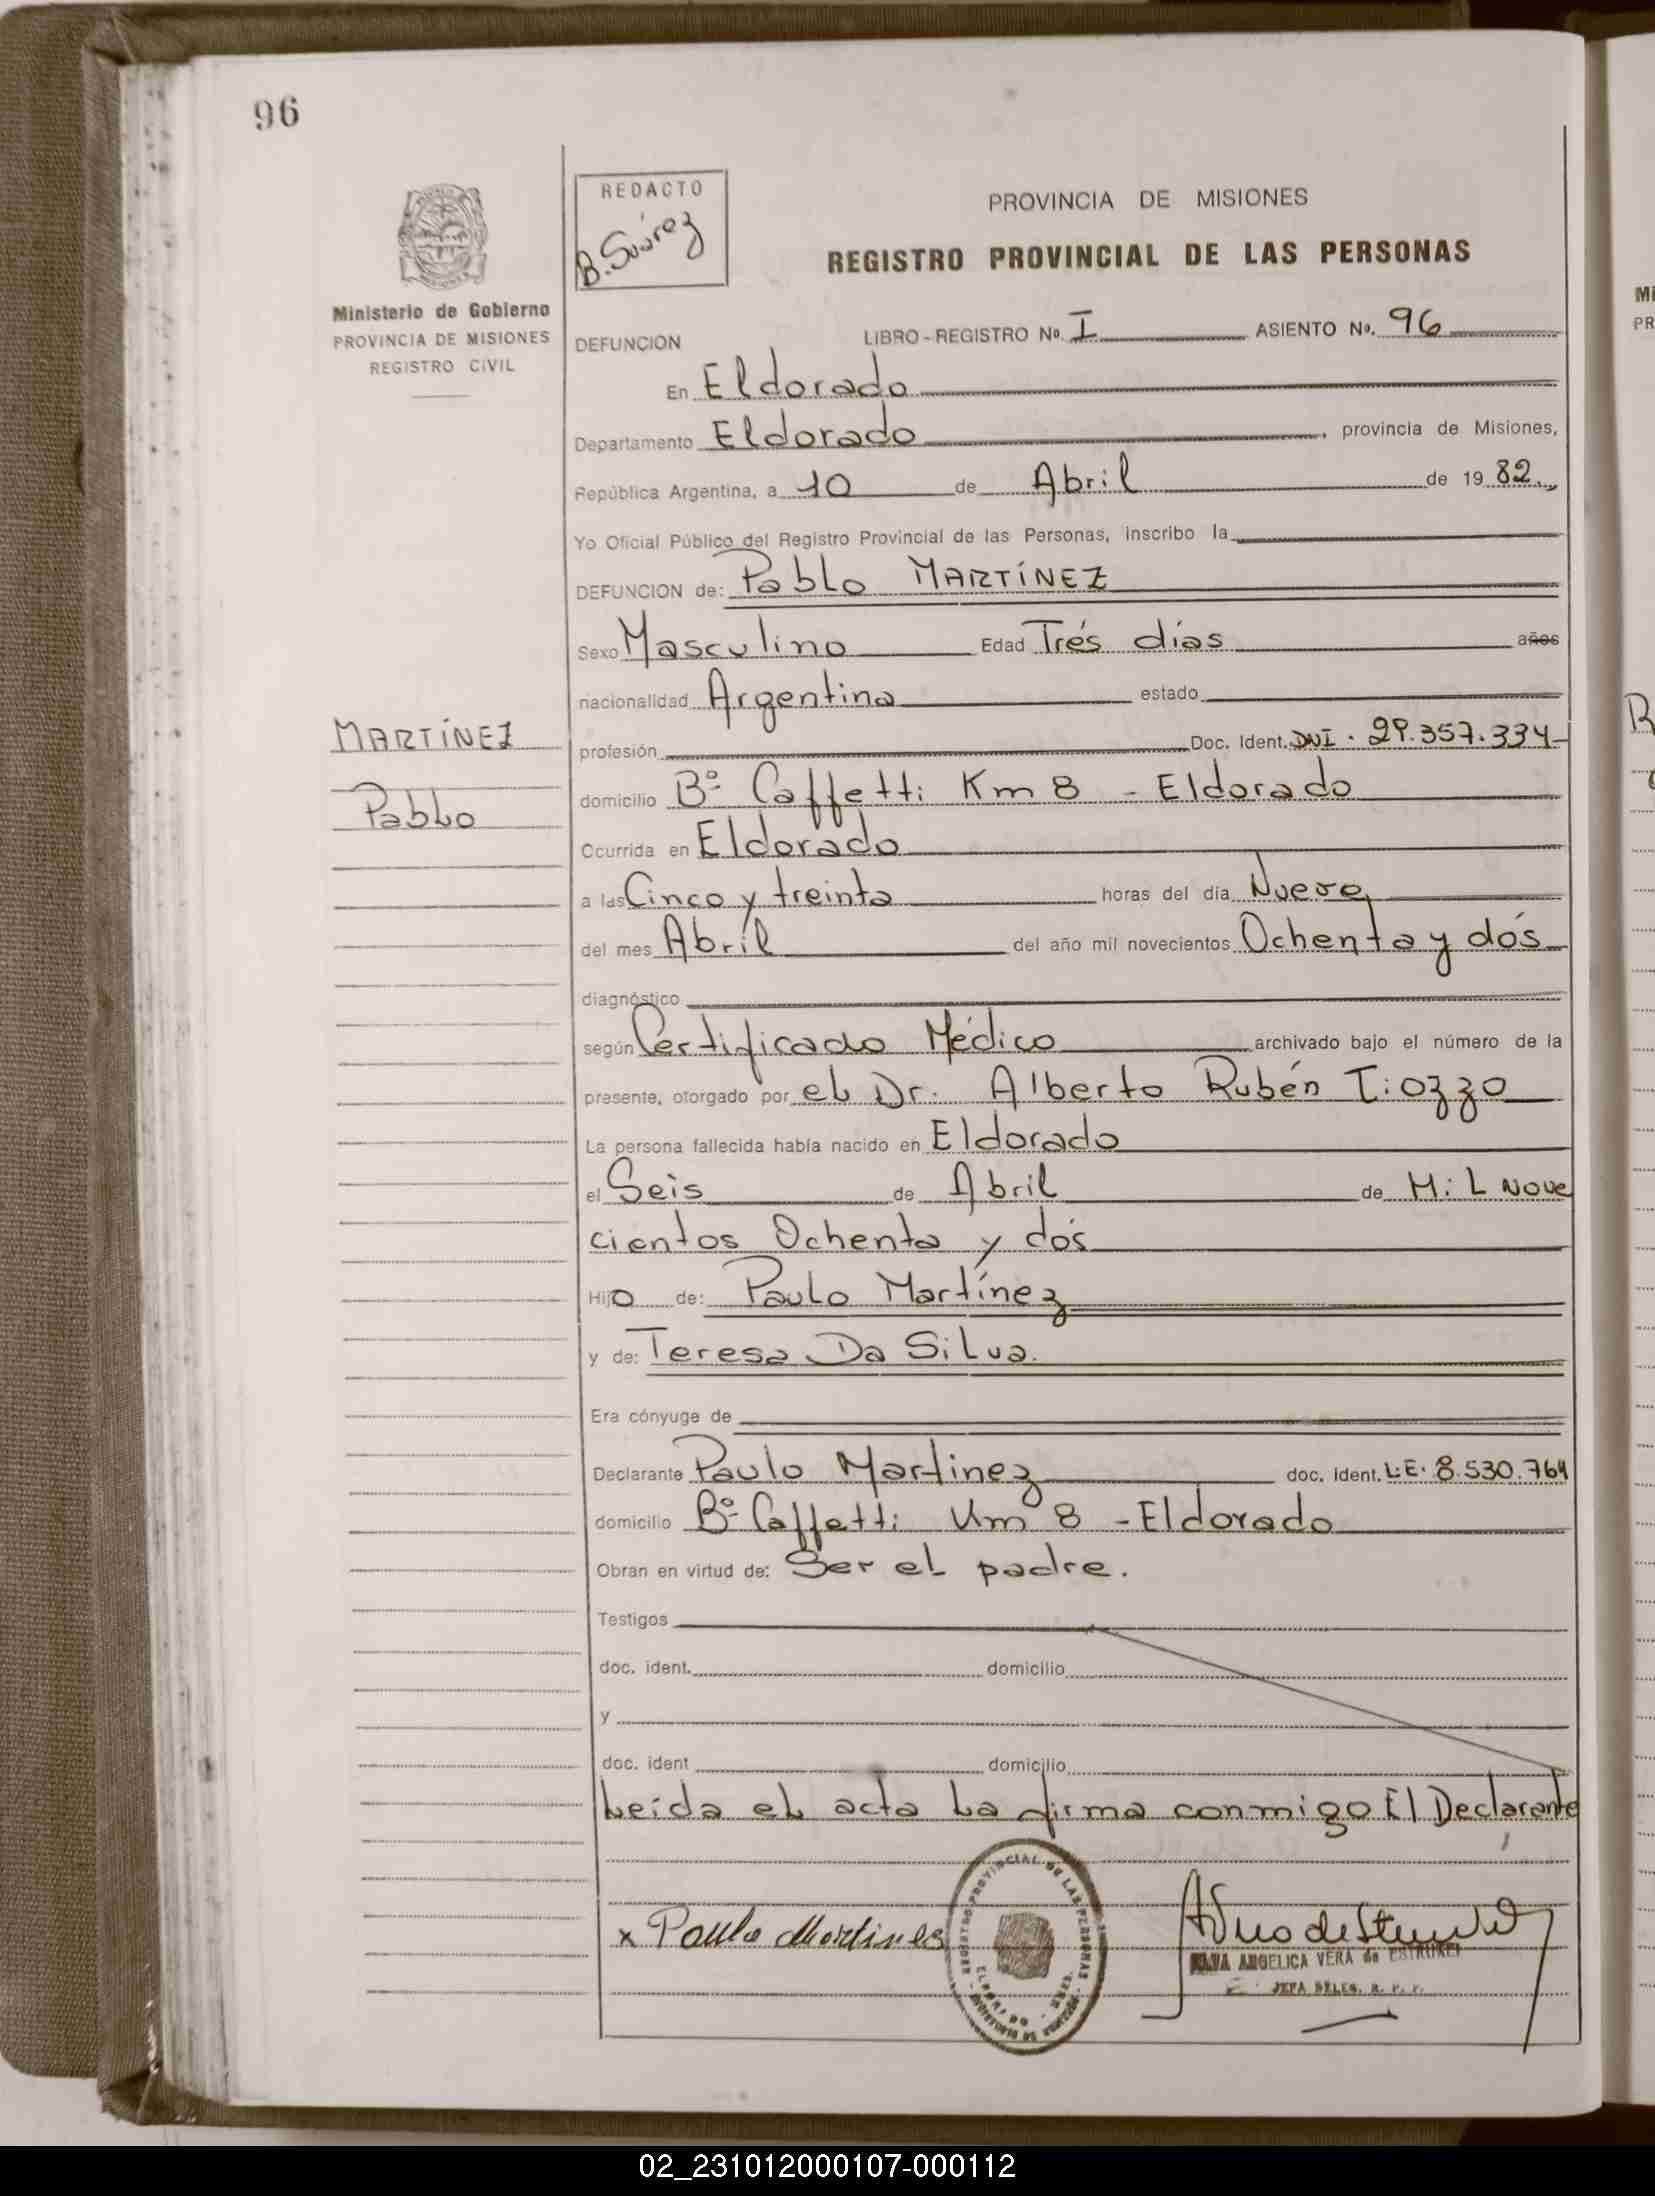 96
REDACTO
B. Suárez
PROVINCIA DE MISIONES
REGISTRO PROVINCIAL DE LAS PERSONAS
Ministerio de Gobierno
PROVINCIA DE MISIONES
REGISTRO CIVIL
DEFUNCION LIBRO-REGISTRO No. I ASIENTO No. 96
En Eldorado
Departamento Eldorado, provincia de Misiones,
República Argentina, a 10 de Abril de 19 82.,
Yo Oficial Público del Registro Provincial de las Personas, inscribo la
DEFUNCION de: Pablo MARTÍNEZ
Sexo Masculino Edad Trés días años
nacionalidad Argentina estado
MARTÍNEZ
Pablo
profesión Doc. Ident. DNI. 29.357.334
domicilio Bº Caffetti Km 8 - Eldorado
Ocurrida en Eldorado
a las Cinco y treinta horas del día Nueve,
del mes Abril del año mil novecientos Ochenta y dós
diagnóstico
según Certificado Médico archivado bajo el número de la
presente, otorgado por el Dr. Alberto Rubén Tiozzo
La persona fallecida había nacido en Eldorado
el Seis de Abril de Mil Nove
cientos Ochenta y dós
Hijo de: Paulo Martínez
y de: Teresa Da Silva.
Era cónyuge de
Declarante Paulo Martinez doc. ident. L.E. 8.530.764
domicilio Bº Caffetti Km 8 - Eldorado
Obran en virtud de: Ser el padre.
Testigos
doc. ident. domicilio
y
doc. ident domicilio
Leida el acta La firma conmigo El Declarante
x Paulo Martines
REGISTRO PROVINCIAL DE LAS PERSONAS
ELDORADO
ANGELICA VERA de
JEFA DELEG. R. P. P.
Mi
PR
02_231012000107-000112